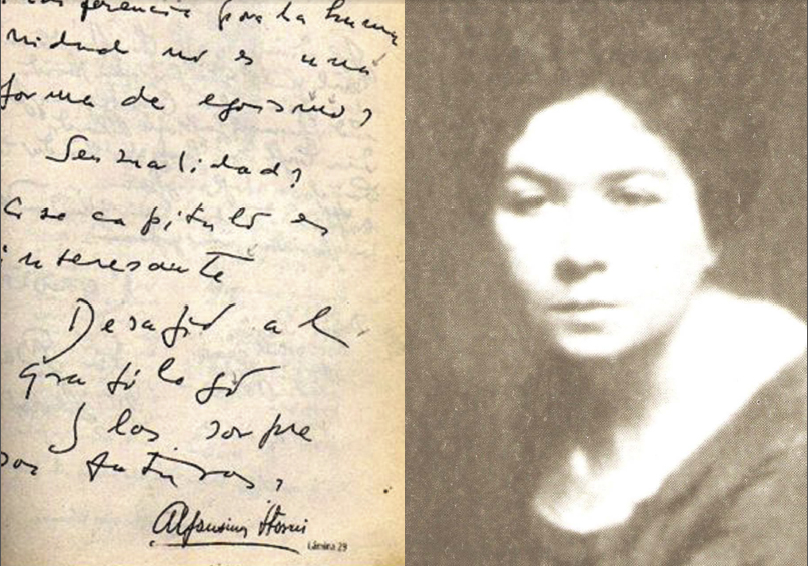 ferencia por la huma
nidad no es una
forma de egoismo?
Sensualidad?
Ese capitulo es
interesante
Desafío al
grafólogo
y los sorpre
sas futuras,
Alfonsina Storni
Lámina 29